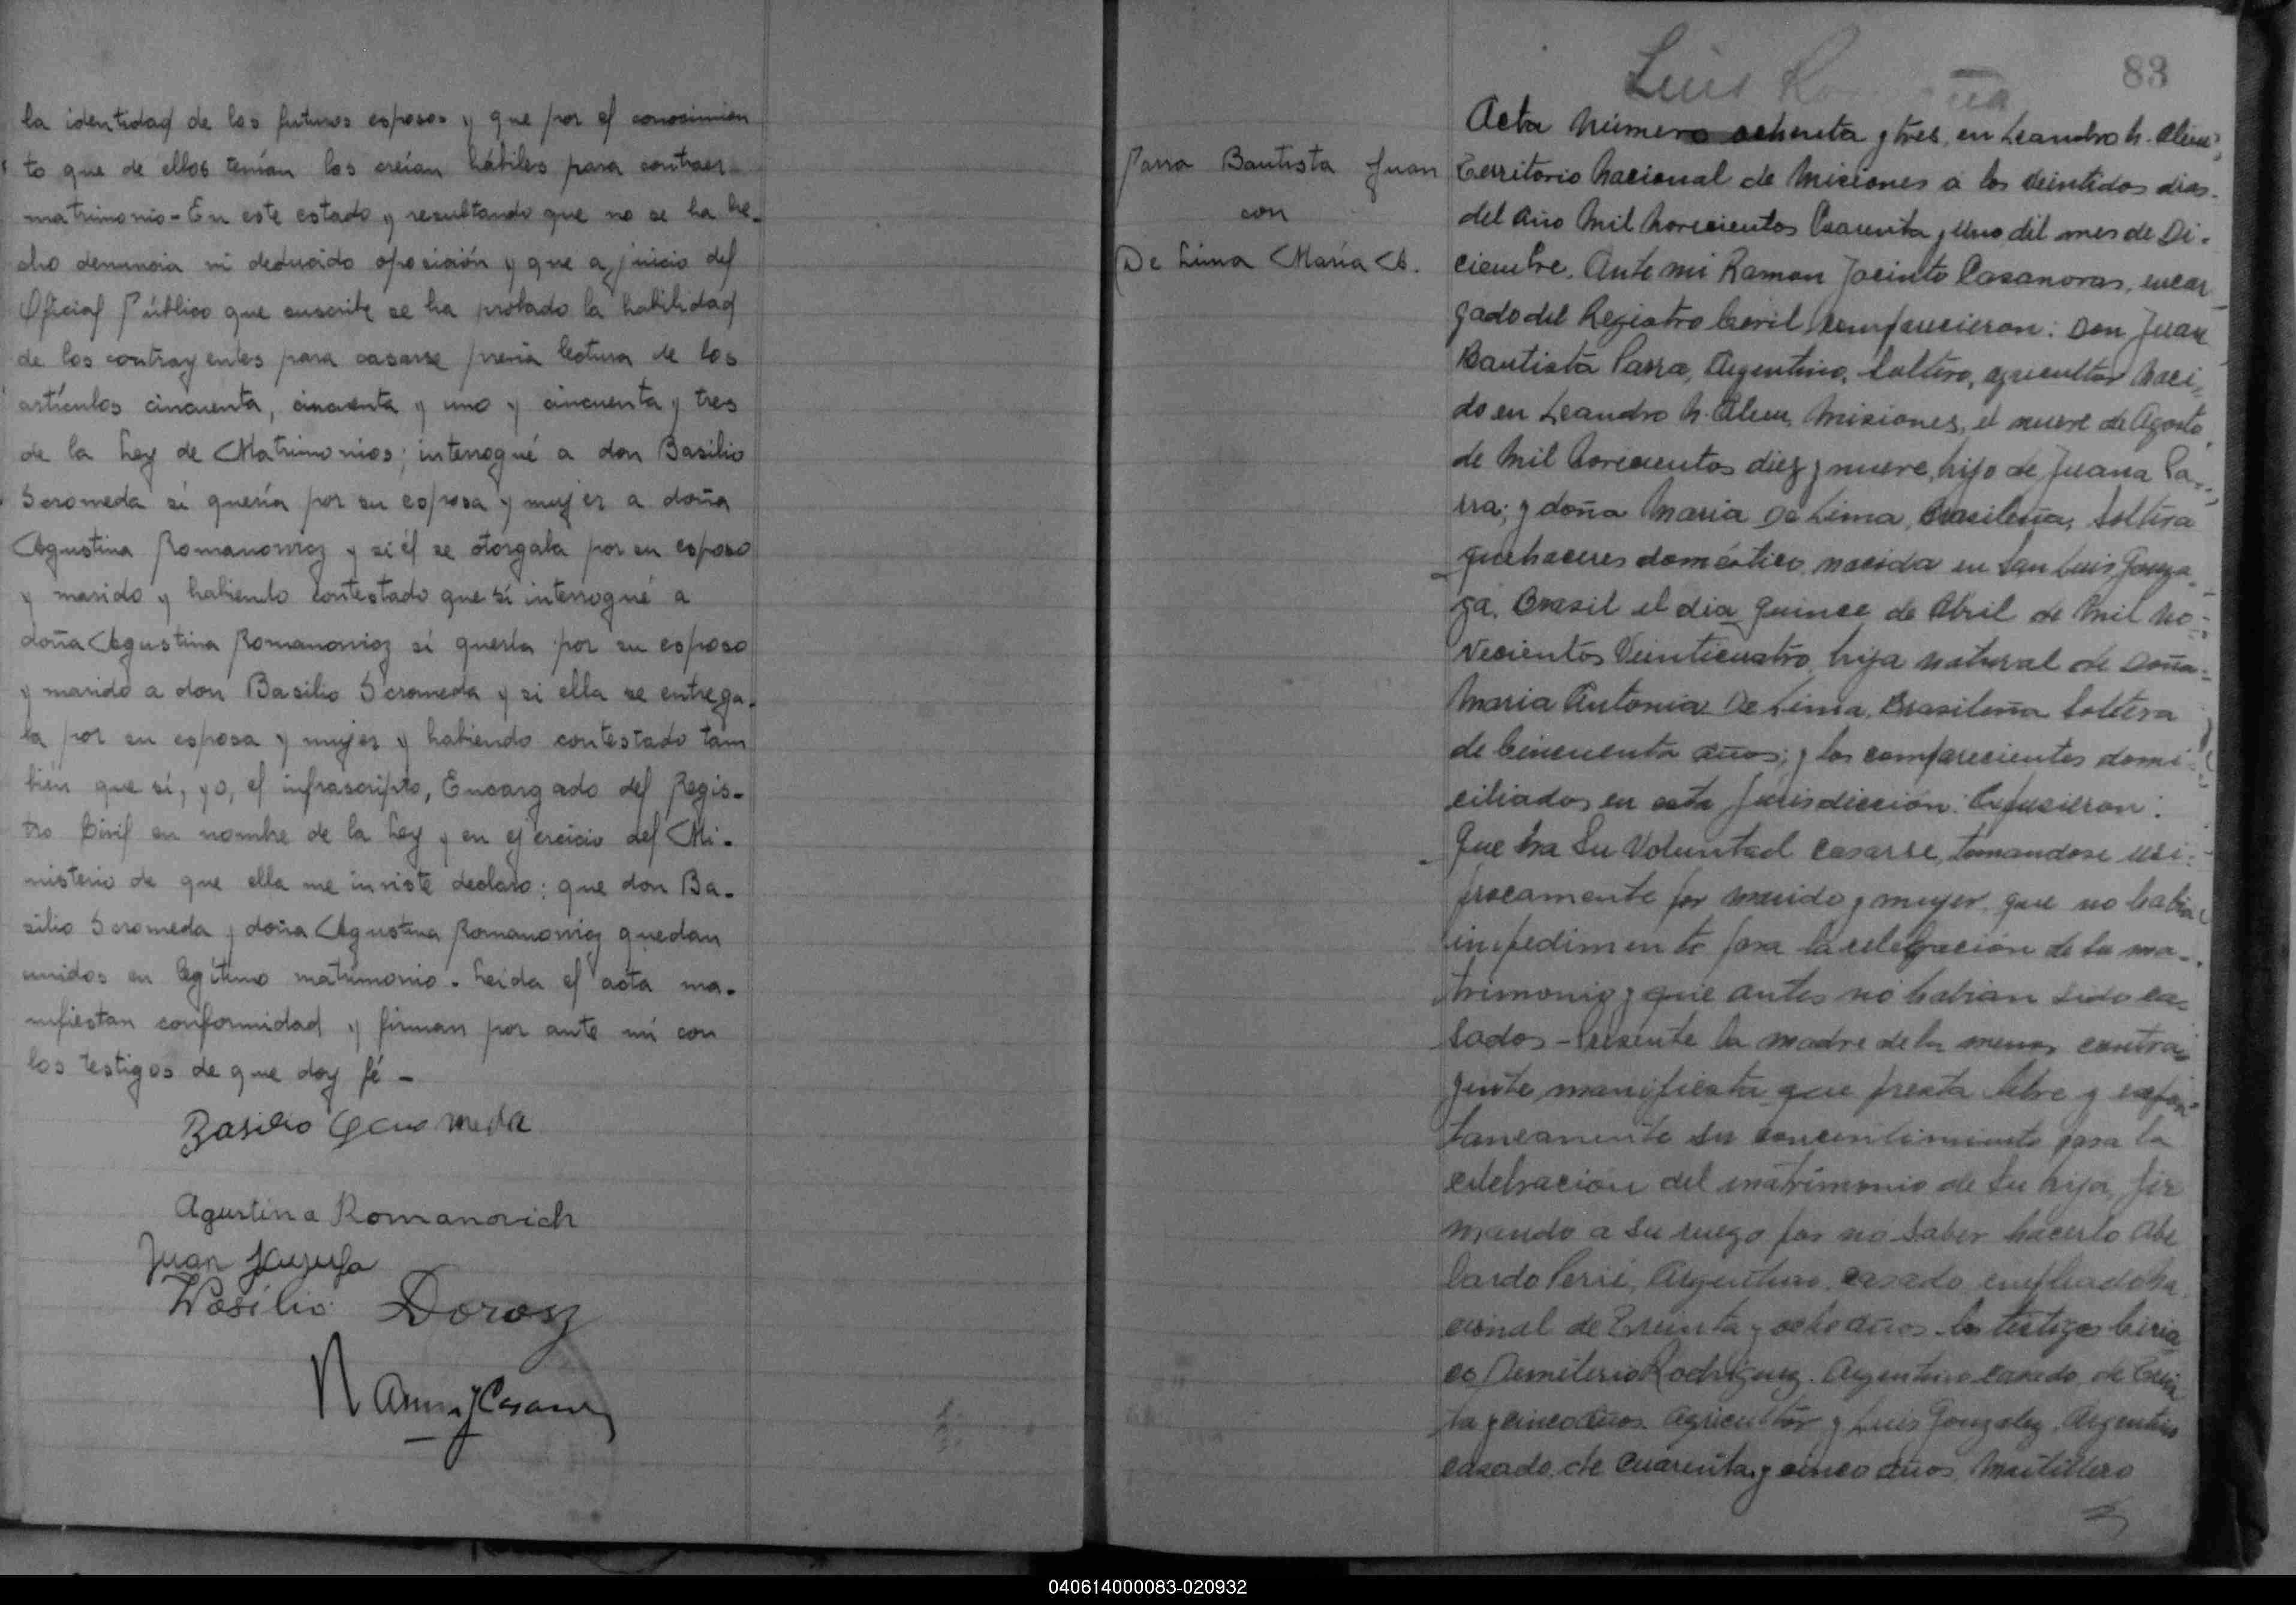 la identidad de los futuros esposos y que por el conocimien
to que de ellos tenían los creían hábiles para contraer
matrimonio - En este estado y resultando que no se ha he-
cho denuncia ni deducido oposición y que a juicio del
Oficial Público que suscribe se ha probado la habilidad
de los contrayentes para casarse previa lectura de los
artículos cincuenta, cincuenta y uno y cincuenta y tres
de la Ley de Matrimonios; interrogué a don Basilio
Scromeda si quería por su esposa y mujer a doña
Agustina Romanowicz y si él se otorgaba por su esposo
y marido y habiendo contestado que sí interrogué a
doña Agustina Romanowicz si quería por su esposo
y marido a don Basilio Scromeda y si ella se entrega-
ba por su esposa y mujer y habiendo contestado tam
bién que sí, yo, el infrascripto, Encargado del Regis-
tro Civil en nombre de la Ley y en ejercicio del Mi-
nisterio de que ella me inviste declaro: que don Ba-
silio Scromeda y doña Agustina Romanowicz quedan
unidos en legítimo matrimonio. Leida el acta ma-
nifiestan conformidad y firman por ante mí con
los testigos de que doy fé -
Basilio
Agustina Romanovich
Juan
Wasilio Dorosz
83
Luis
Parra Bautista Juan
con
De Lima María A.
Acta Número ochenta y tres, en Leandro N. Alem,
Territorio Nacional de Misiones a los veintidos dias
del Año Mil Novecientos Cuarenta y Uno del mes de Di-
ciembre. Ante mi Ramon Jacinto Casanovas, encar
gado del Registro Civil, comparecieron: Don Juan
Bautista Parra, Argentino, Soltero, agricultor Naci-
do en Leandro N. Alem, Misiones, el nueve de Agosto
de Mil Novecientos diez y nueve, hijo de Juana Pa-
rra; y doña Maria De Lima, Brasileña, Soltera
quehaceres doméstico, nacida en San Luis Gonza-
ga, Brasil el dia quince de Abril de Mil No-
vecientos Veinticuatro, hija natural de Doña
Maria Antonia De Lima, Brasileña Soltera
de Cincuenta años; y los comparecientes domi-
ciliados en esta Jurisdicción: Expusieron:
Que era Su Voluntad casarse, tomandose reci-
procamente por marido y mujer, que no había
impedimento para la celebración de su ma-
trimonio y que antes no habian sido ca-
sados - Presente la madre de la menor contra-
yente, manifiesta que presta libre y espon-
taneamente su concentimiento para la
celebración del matrimonio de su hija, fir
mando a su ruego por no saber hacerlo Abe
lardo Perié, Argentino, casado, empleado Na
cional de Treinta y ocho años - los testigos Ciria
co Demeterio Rodriguez, Argentino casado, de Trein
ta y cinco años, Agricultor y Luis Gonzalez, Argentino
casado, de cuarenta y cinco años, Martillero
040614000083-020932